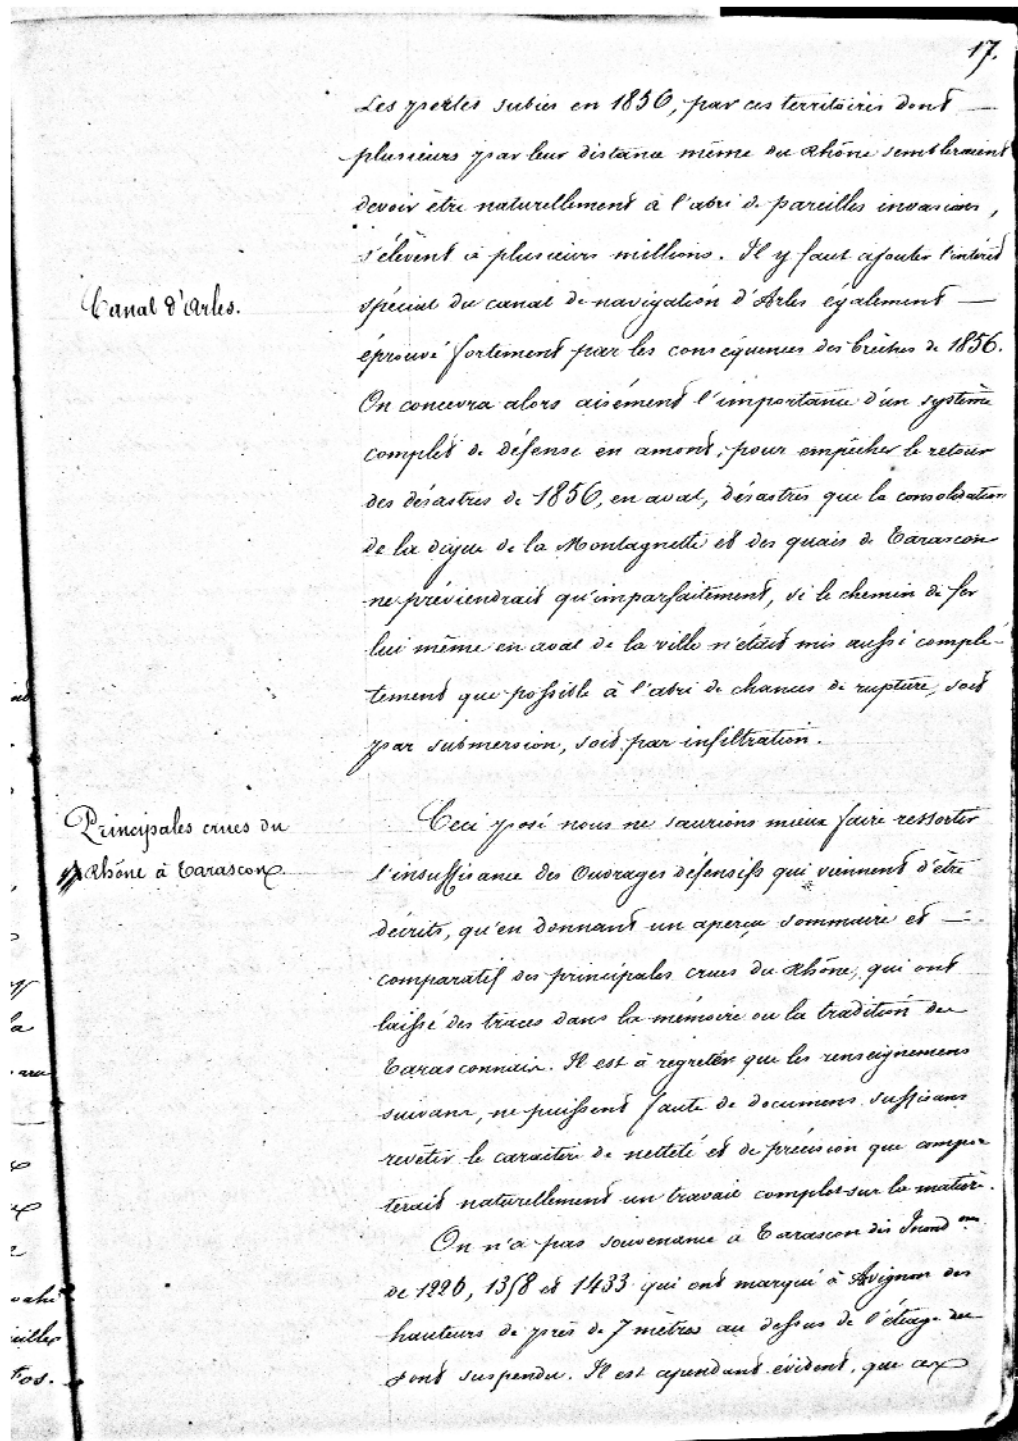 17.
Les pertes subies en 1856, par ces territoires dont —
plusieurs par leur distance même du Rhône sembleraient
devoir être naturellement à l'abri de pareilles invasions,
s'élèvent à plusieurs millions. Il y faut ajouter l'intérêt
Canal d'Arles.
spécial du canal de navigation d'Arles également —
éprouvé fortement par les conséquences des brèches de 1856.
On concevra alors aisément l'importance d'un système
complet de défense en amont, pour empêcher le retour
des désastres de 1856, en aval, désastres que la consolidation
de la digue de la Montagnette et des quais de Tarascon
ne préviendrait qu'imparfaitement, si le chemin de fer
lui même en aval de la ville n'était mis aussi complè-
tement que possible à l'abri de chances de rupture, soit
par submersion, soit par infiltration.
Principales crues du
Rhône à Tarascon
Ceci posé nous ne saurions mieux faire ressortir
l'insuffisance des Ouvrages défensifs qui viennent d'être
décrits, qu'en donnant un aperçu sommaire et —
comparatif des principales crues du Rhône, qui ont
laissé des traces dans la mémoire ou la tradition des
Tarasconnais. Il est à regretter que les renseignemens
suivans, ne puissent faute de documens suffisans
revêtir le caractère de netteté et de précision que compor
terait naturellement un travail complet sur la matière.
On n'a pas souvenance à Tarascon des Inond ons
de 1226, 1358 et 1433 qui ont marqué à Avignon des
hauteurs de près de 7 mètres au dessus de l'étiage du
pont suspendu. Il est cependant évident, que ces
vahi
eilles
Fos.